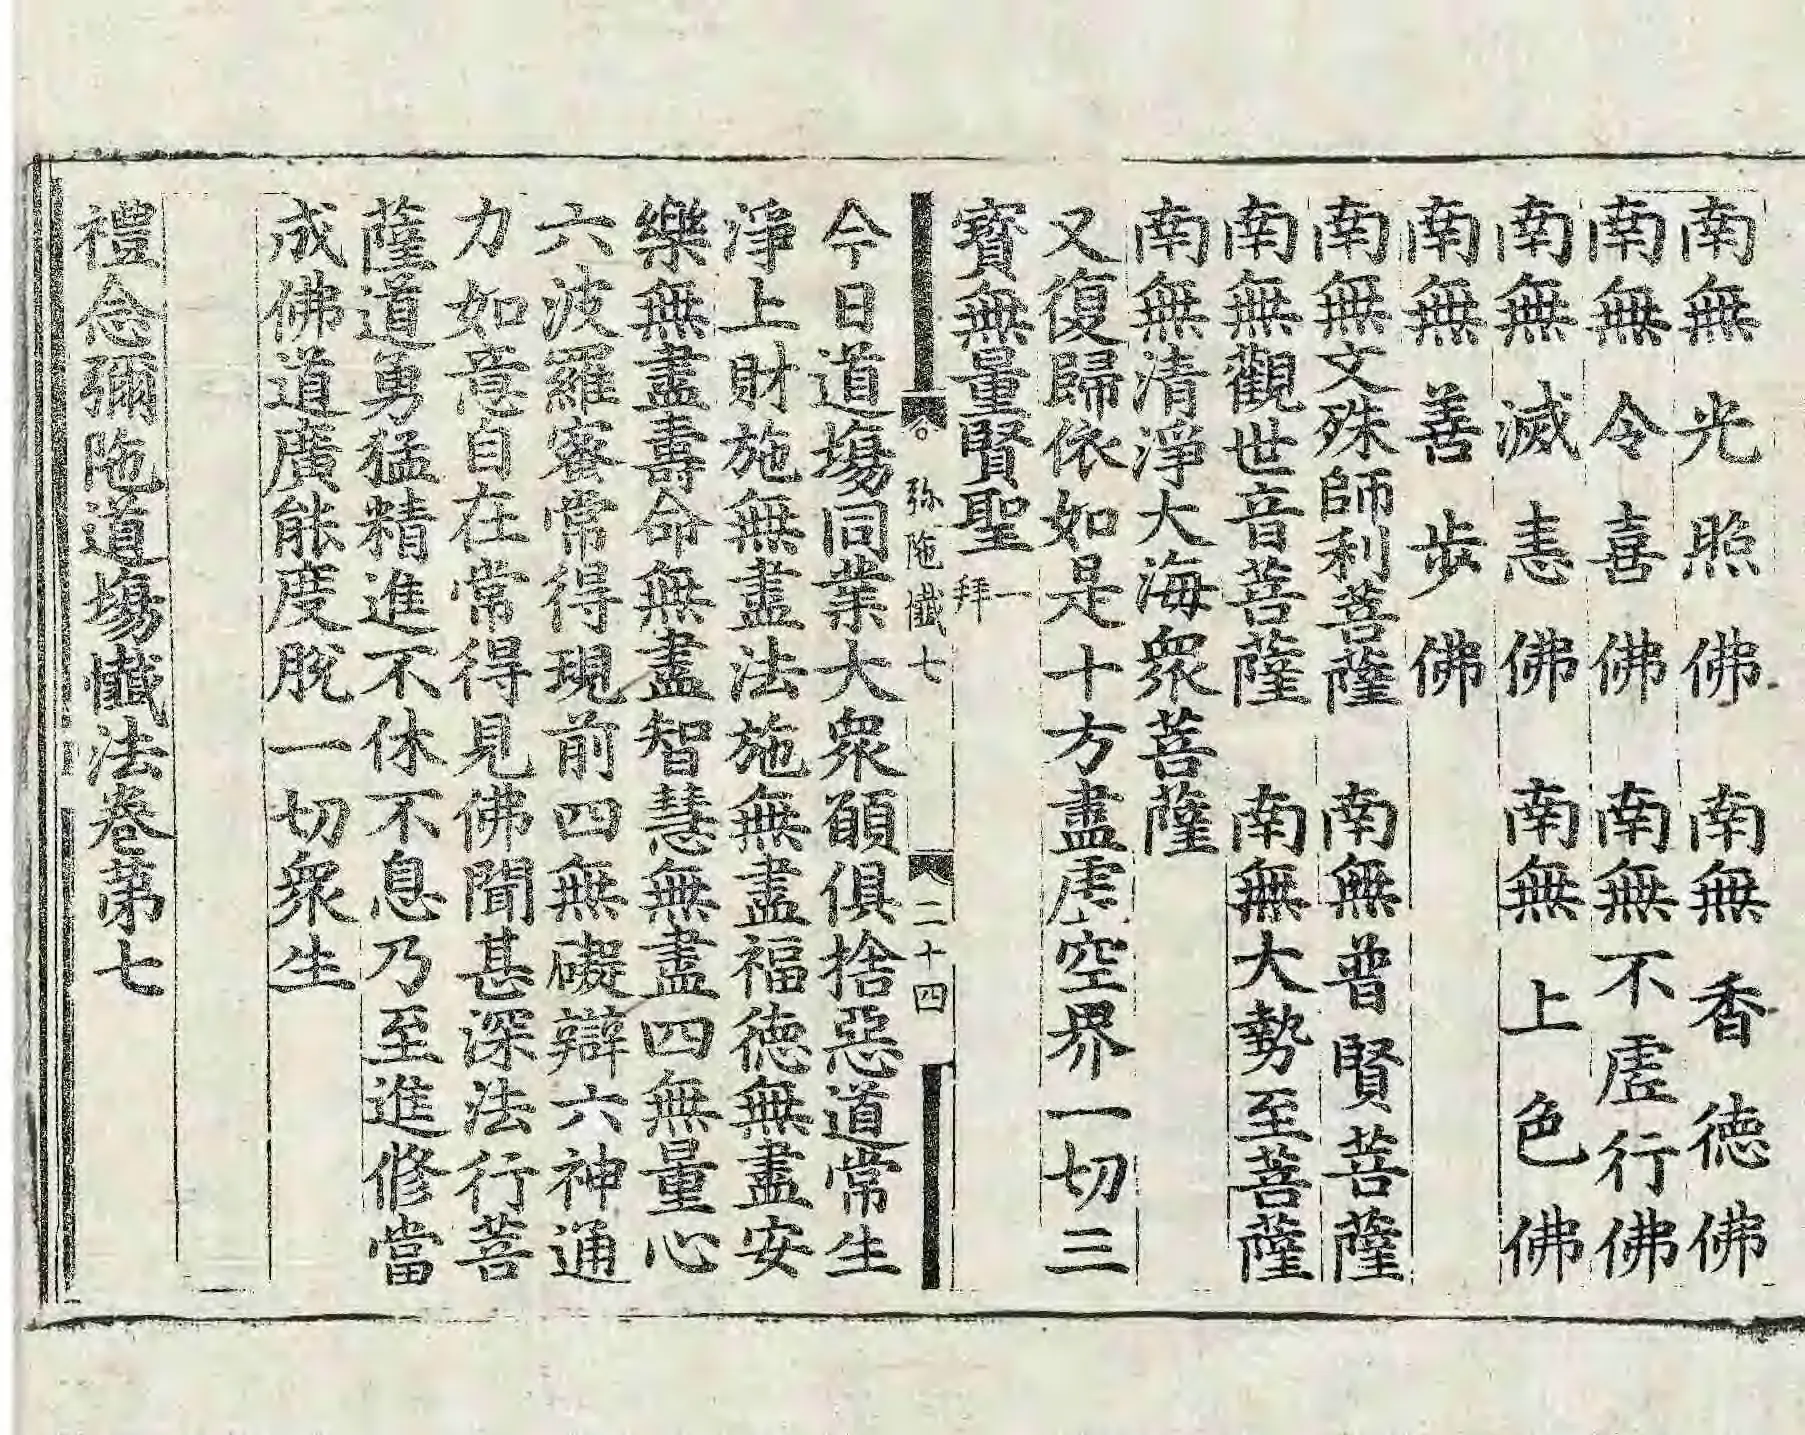 南無光照佛　南無香德佛
南無令喜佛　南無不虛行佛
南無滅恚佛　南無上色佛
南無善步佛
南無文殊師利菩薩　南無普賢菩薩
南無觀世音菩薩　南無大勢至菩薩
南無清淨大海衆菩薩
又復歸依如是十方盡虛空界一切三
寶無量賢聖一拜
弥陁懺七　二十四
今日道塲同業大衆願俱捨惡道常生
淨上財施無盡法施無盡福德無盡安
樂無盡壽命無盡智慧無盡四無量心
六波羅蜜常得現前四無礙辯六神通
力如意自在常得見佛聞甚深法行菩
薩道勇猛精進不休不息乃至進修當
成佛道廣能度脫一切衆生
禮念彌陁道塲懺法卷第七